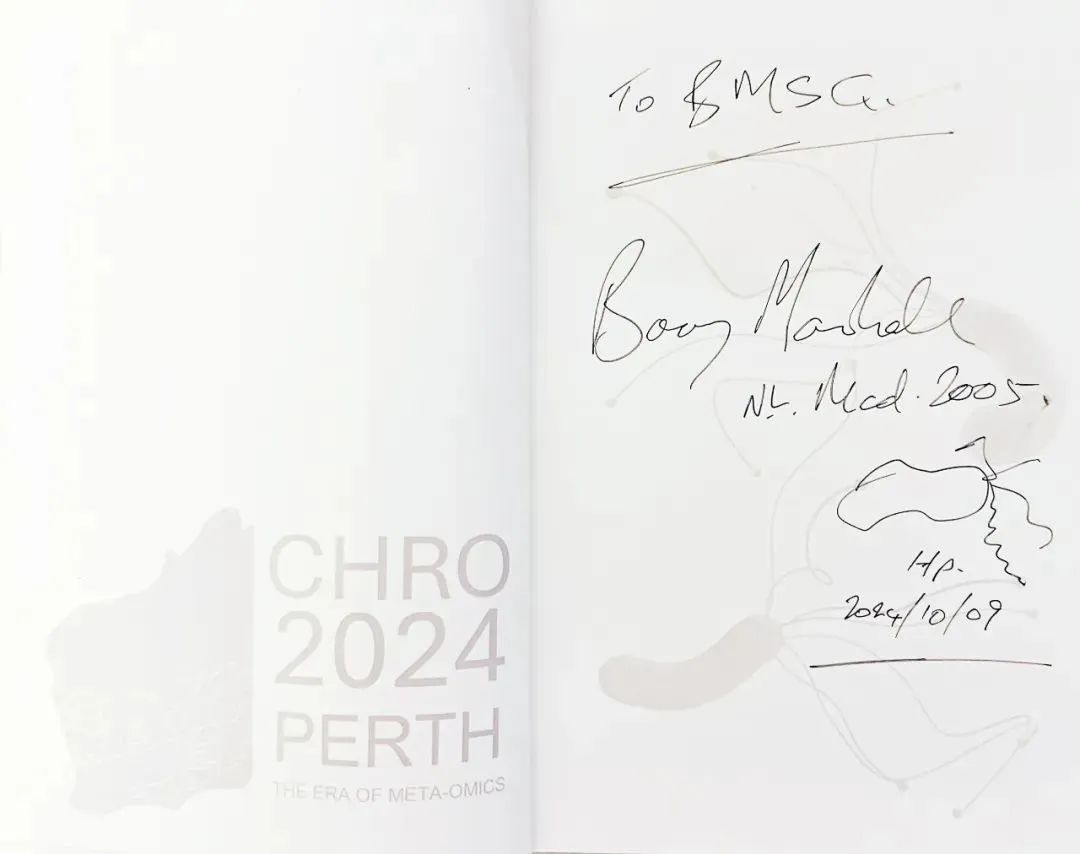 CHRO
2024
PERTH
THE ERA OF META-OMICS
To BMSG.
Barry Marshall
NL. Med. 2005.
Hp.
2024/10/09